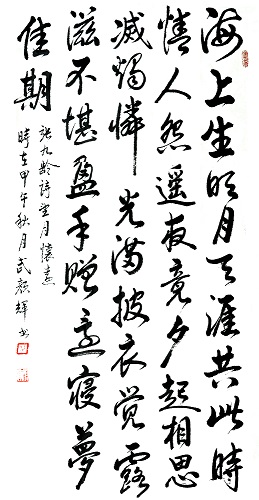 海上生明月天涯共此時
情人怨遥夜竟夕起相思
滅燭憐光滿披衣覺露
滋不堪盈手贈還寢夢
佳期
張九齡詩望月懷遠
時在甲午秋月武顏輝書